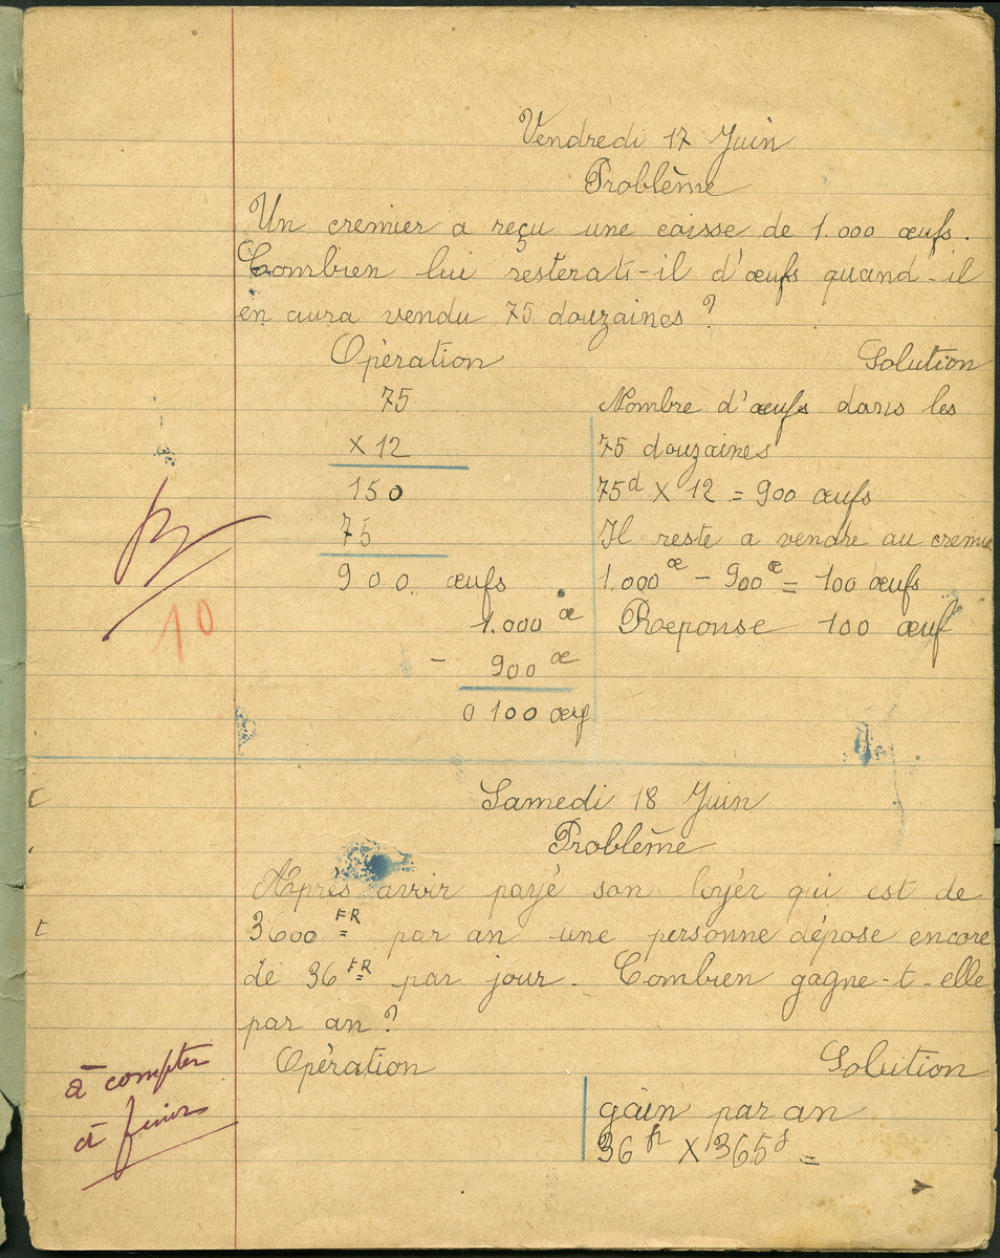 Vendredi 17 Juin
Problème
Un cremier a reçu une caisse de 1.000 œufs.
Combien lui resterats-il d'œufs quand-il
en aura vendu 75 douzaines ?
Opération
75
× 12
150
75
900 œufs
1.000 œ
- 900 œ
0 100 œuf
Solution
Nombre d'œufs dans les
75 douzaines
75d × 12 = 900 œufs
Il reste a vendre au cremie
1.000 œ - 900 œ = 100 œufs
Reponse 100 œuf
10
Samedi 18 Juin
Problème
Après avoir payé son loyér qui est de
3600 FR par an une personne dépose encore
de 36 FR par jour. Combien gagne-t-elle
par an ?
Opération
Solution
gain par an
36 fr × 365 j =
à compter
à finir